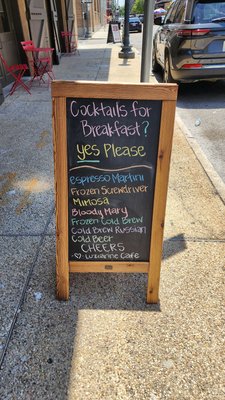 Cocktails for
Breakfast?
Yes Please
Espresso Martini
Frozen Screwdriver
Mimosa
Bloody Mary
Frozen Cold Brew
Cold Brew Russian
Cold Beer
CHEERS
Cafe